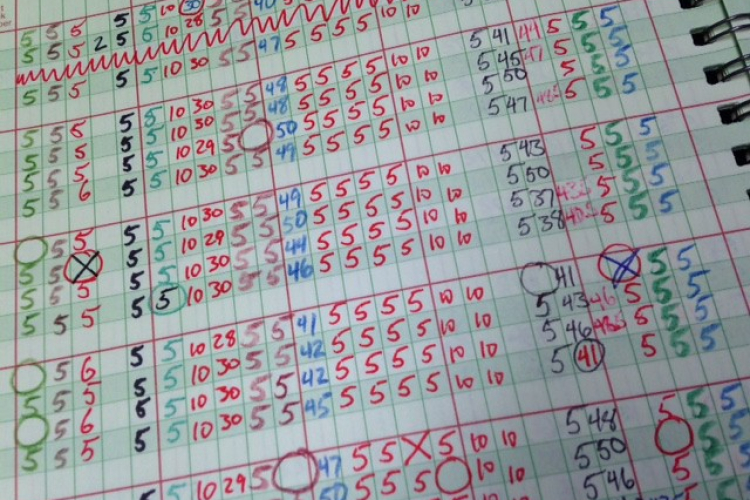 5 5 5 5 5 10 30 5 5 40
5 5 5 2 5 6 10 28 5 5 47 5 5 5 5 10 10
5 5 5 5 5 10 30 5 5
5 5 5 5 5 10 30 5 5 48 5 5 5 5 10 10 5 41 44 5 5 5
5 5 5 5 5 10 30 5 5 48 5 5 5 5 10 10 5 45 5 5 5
5 5 5 5 5 10 29 5 50 5 5 5 5 10 10 5 50 5 5 5
5 5 6 5 5 10 30 5 5 49 5 5 5 5 10 10 5 47 5 5 5
5 5 5 5 10 30 5 5 49 5 5 5 5 10 10 5 43 5 5 5
5 5 X 5 5 10 29 5 5 50 5 5 5 5 10 10 5 50 5 5 5
5 5 5 5 5 10 30 5 5 44 5 5 5 5 10 10 5 37 5 5 5
5 5 5 5 5 10 30 5 5 46 5 5 5 5 10 10 5 38 5 5 5
5 6 5 5 10 28 5 5 41 5 5 5 5 10 10 41 X 5 5
5 5 5 5 5 10 30 5 5 42 5 5 5 5 10 10 5 43 46 5 5 5
5 6 6 5 10 30 5 5 42 5 5 5 5 10 10 5 46 5 5 5
5 5 5 5 5 10 30 5 5 45 5 5 5 5 10 10 5 41 5 5 5
5 5 10 29 5 47 5 5 X 5 10 10 5 48 5 5 5
50 5 5 5 10 10 5 50 5 5
5 46 5 5 5